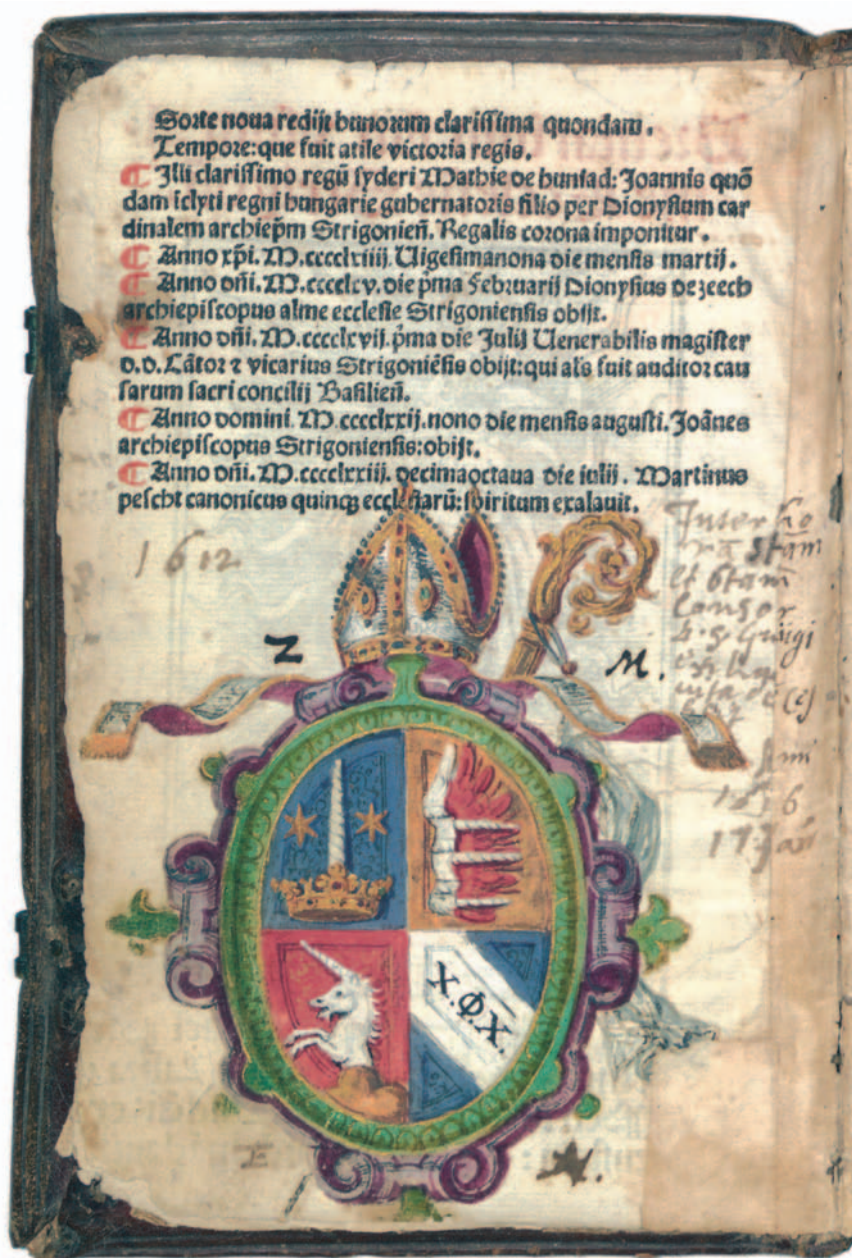 Sorte noua redijt hunorum clarissima quondam.
Tempore: que fuit atile victoria regis.
¶ Illi clarissimo regū syderi Mathie de huniad: Joannis quō
dam iclyti regni hungarie gubernatoris filio per Dionysium car
dinalem archiep̄m Strigonień. Regalis corona imponitur.
¶ Anno xp̄i. M.cccclxiiij. Uigesimanona die mensis martij.
¶ Anno dn̄i. M.cccclxv. die p̄ma Februarij Dionysius de zeech
archiepiscopus alme ecclesie Strigoniensis obijt.
¶ Anno dn̄i. M.cccclxvij. p̄ma die Julij Uenerabilis magister
d.d. Cātor ⁊ vicarius Strigoniēsis obijt: qui al̓s fuit auditor cau
sarum sacri concilij Basilień.
¶ Anno domini. M.cccclxxij. nono die mensis augusti. Joānes
archiepiscopus Strigoniensis: obijt.
¶ Anno dn̄i. M.cccclxxiij. decimaoctaua die iulij. Martinus
pescht canonicus quinq̄ ecclesiarū: spiritum exalauit.
1612
Z M.
X.Φ.X.